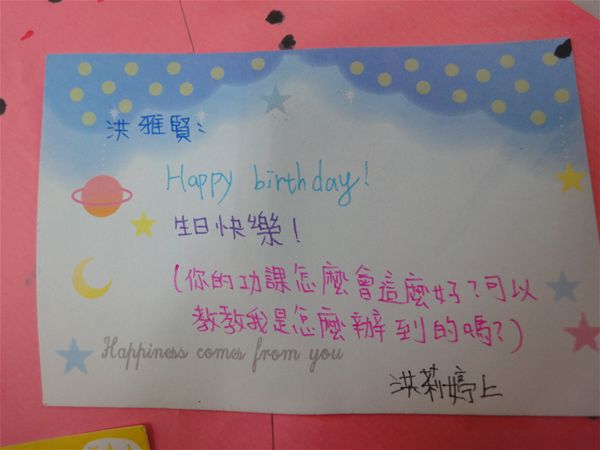 洪雅賢:
Happy birthday!
生日快樂!
(你的功課怎麼會這麼好?可以
教教我是怎麼辦到的嗎?)
Happiness comes from you
洪莉婷上